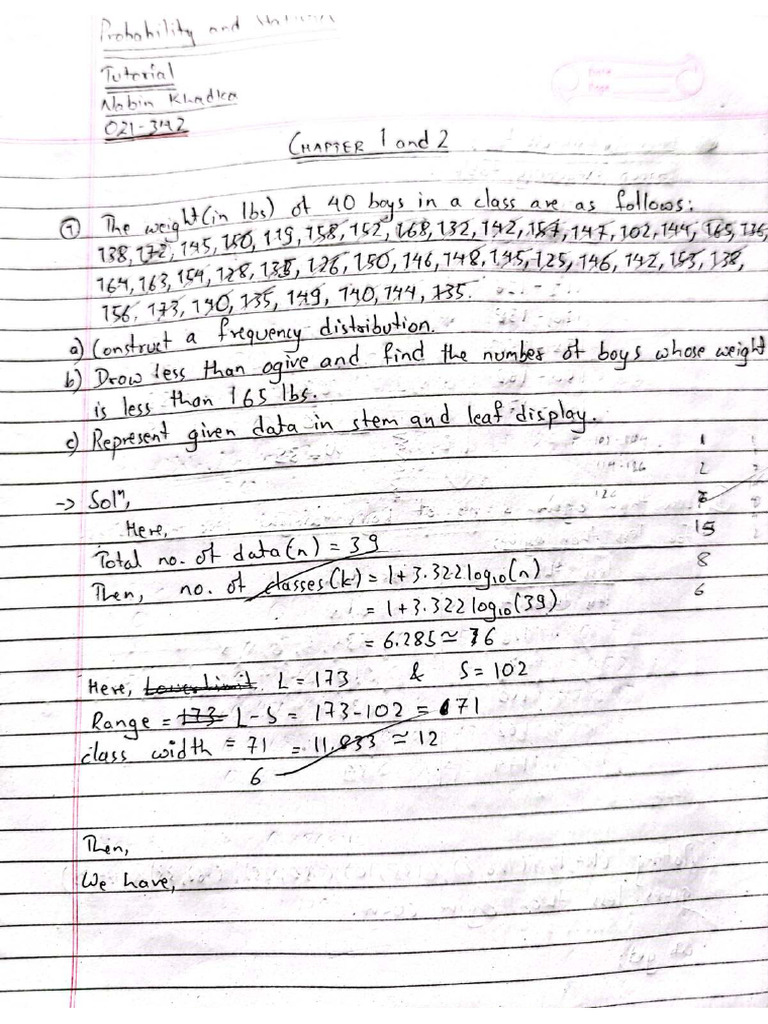 Probability and
Tutorial
Nabin Khadka
021-342
CHAPTER 1 and 2
① The weight (in lbs) of 40 boys in a class are as follows:
138, 172, 145, 150, 119, 158, 152, 168, 132, 142, 157, 147, 102, 144, 165, 136,
164, 163, 154, 128, 138, 126, 150, 146, 148, 145, 125, 146, 142, 153, 138,
156, 173, 140, 135, 149, 140, 144, 135.
a) Construct a frequency distribution.
b) Drow less than ogive and find the number of boys whose weight
is less than 165 lbs.
c) Represent given data in stem and leaf display.
1
114-126 2
126
15
8
6
-> Solⁿ,
Here,
Total no. of data (n) = 39
Then, no. of classes (k) = 1+3.322 log₁₀(n)
= 1+3.322 log₁₀(39)
= 6.285 ≃ 6
Here, Lower limit L = 173 & S = 102
Range = 173 L - S = 173-102 = 71
class width = 71 = 11.833 ≃ 12
6
Then,
We have,